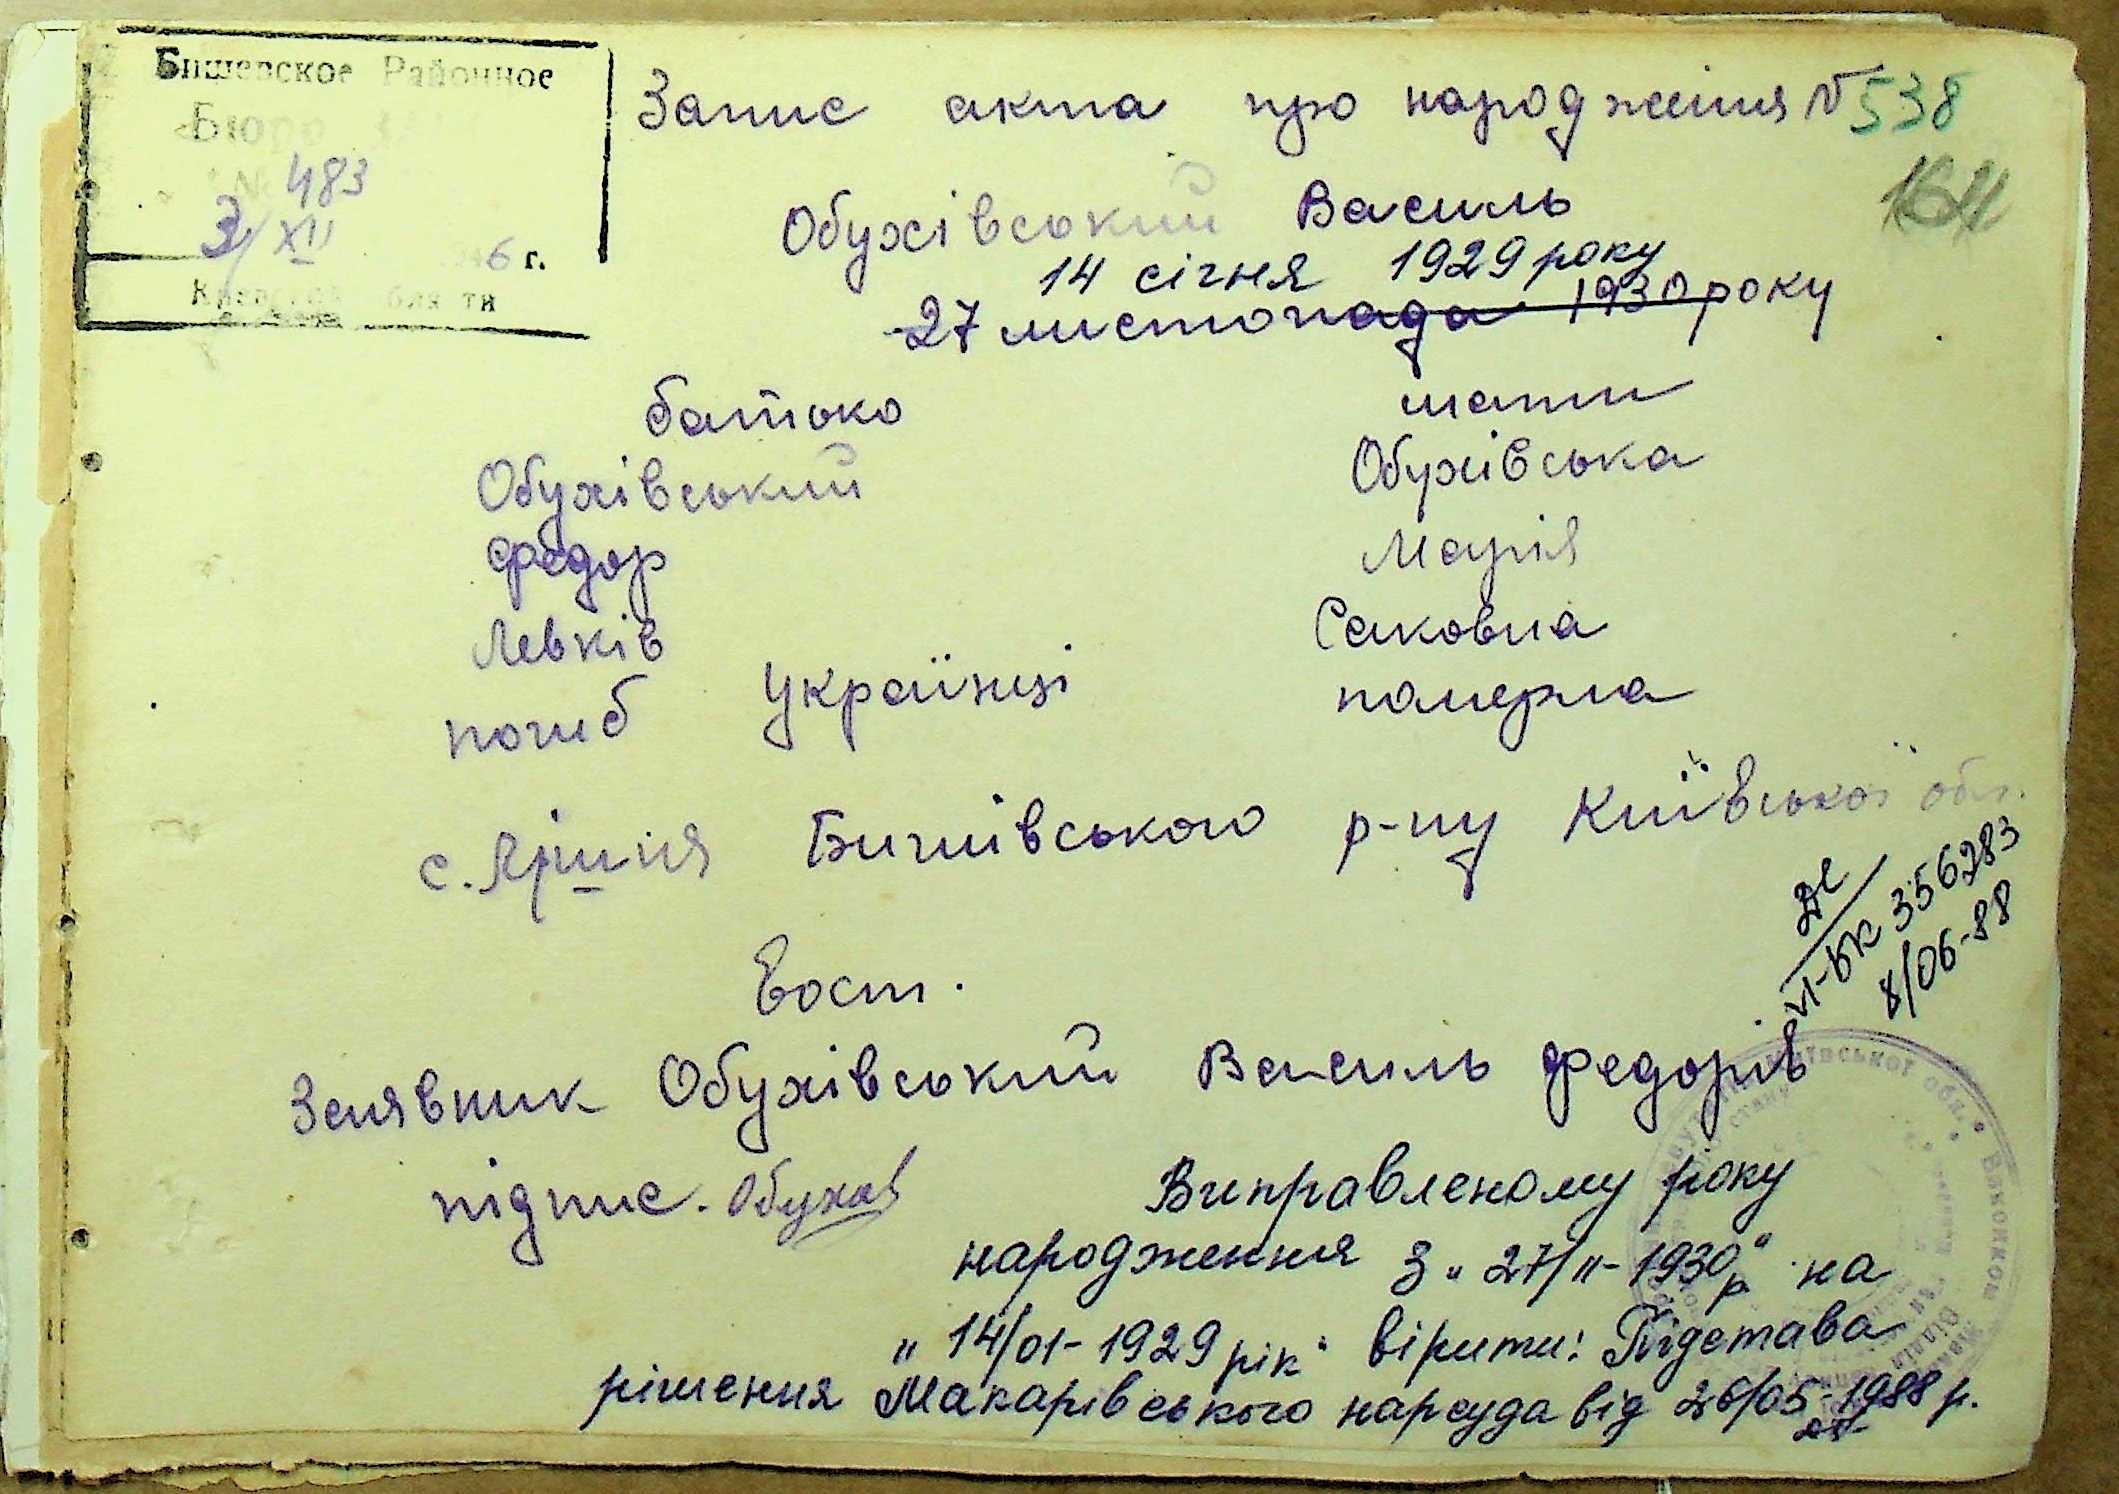 Бишевское Районное
Бюро
№ 483
3/XII 1946 г.
Киевской области
Запис акта про народження № 538
1611
Обухівський Василь
14 січня 1929 року
27 листопада 1930 року
батько мати
Обухівський Обухівська
Федор Марія
Левків Саковна
погиб Українці померла
с. Яришія Бишівського р-ну Київської обл.
VI-БК 356283
8/06-88
Заявник Обухівський Василь Федорів
підпис. Обухов
Виправленому року
народження з "27/II-1930р" на
"14/01-1929 рік" вірити: Підстава
рішення Макарівського нарсуда від 26/05-1988 р.